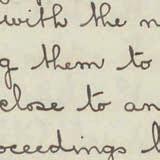 with the
them to
close to an
oceedings